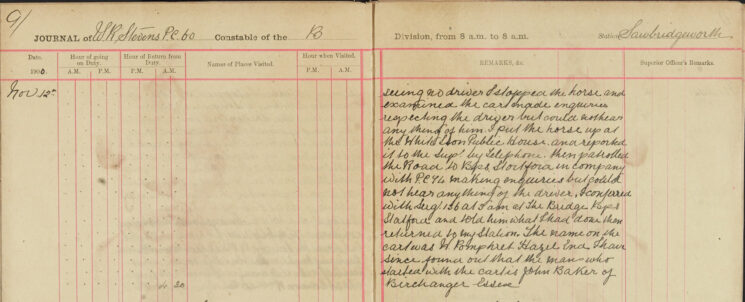 91
JOURNAL of W.R. Stevens P.C. 60 Constable of the B Division, from 8 a.m. to 8 a.m. Station Sawbridgeworth
Date. Hour of going on Duty. Hour of Return from Duty. Names of Places Visited. Hour when Visited. REMARKS, &c. Superior Officer's Remarks.
190 A.M. P.M. A.M. P.M. P.M. A.M.
Nov 12th
seeing no driver I stopped the horse and
examined the cart made enquiries
respecting the driver but could not hear
any thing of him I put the horse up at
the White Lion Public House and reported
it to the Supt by Telephone. then patrolled
the Road to Bps Stortford in company
with P.C. 74 making enquiries but could
not hear anything of the driver, I conferred
with Sergt 136 at 5 am at The Bridge Bps
Stortford and told him what I had done then
returned to my Station. The name on the
cart was W Pomphret Hazel End I have
since found out that the man who
started with the cart is John Baker of
4 30 Birchanger Essex